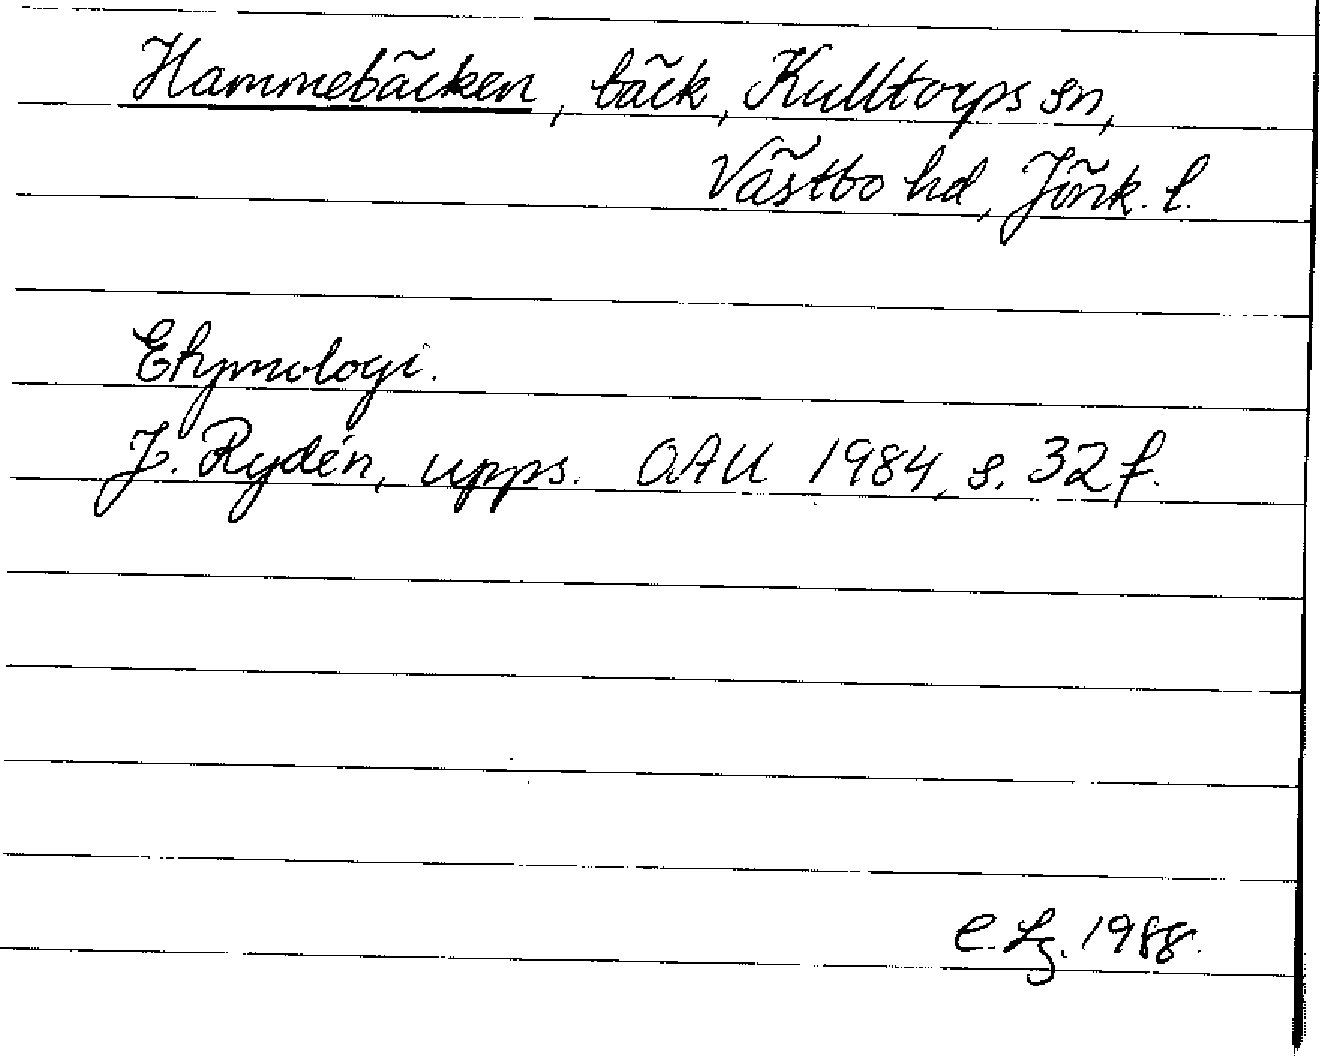 Hammebäcken, bäck, Kulltorps sn,
Västbo hd, Jönk. l.
Etymologi.
J. Rydén, upps. OAU 1984, s. 32 f.
C. Lg. 1988.